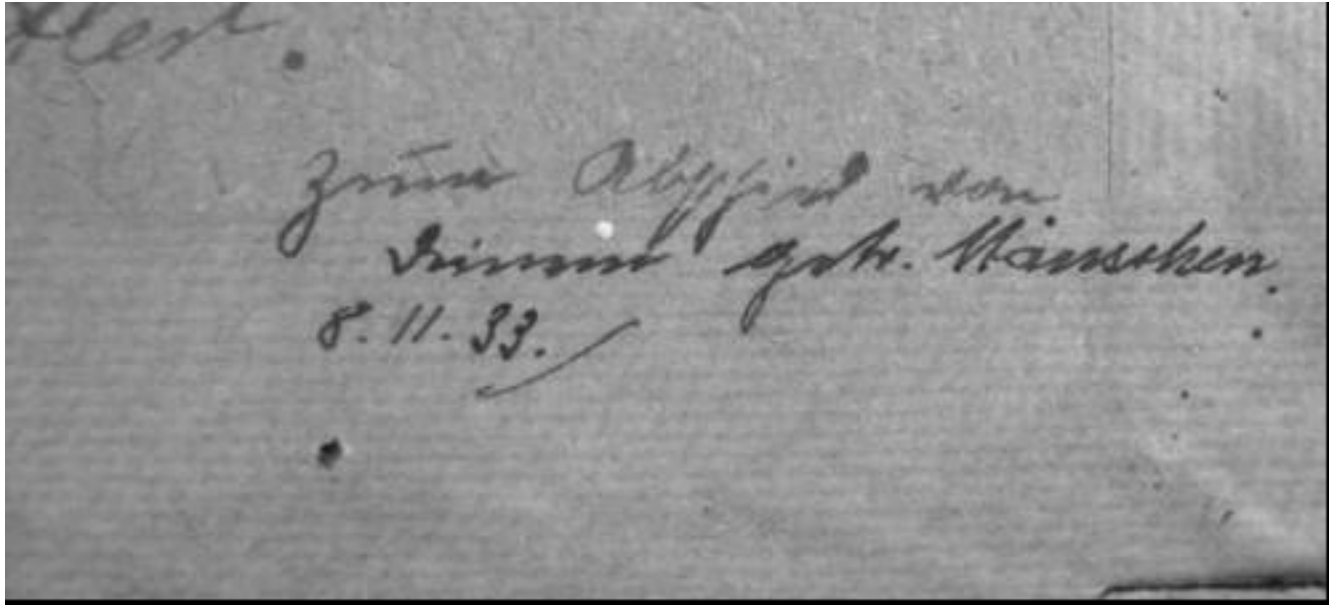 Zum Abschied von
Deinem getr. Mäuschen.
8.11.33.